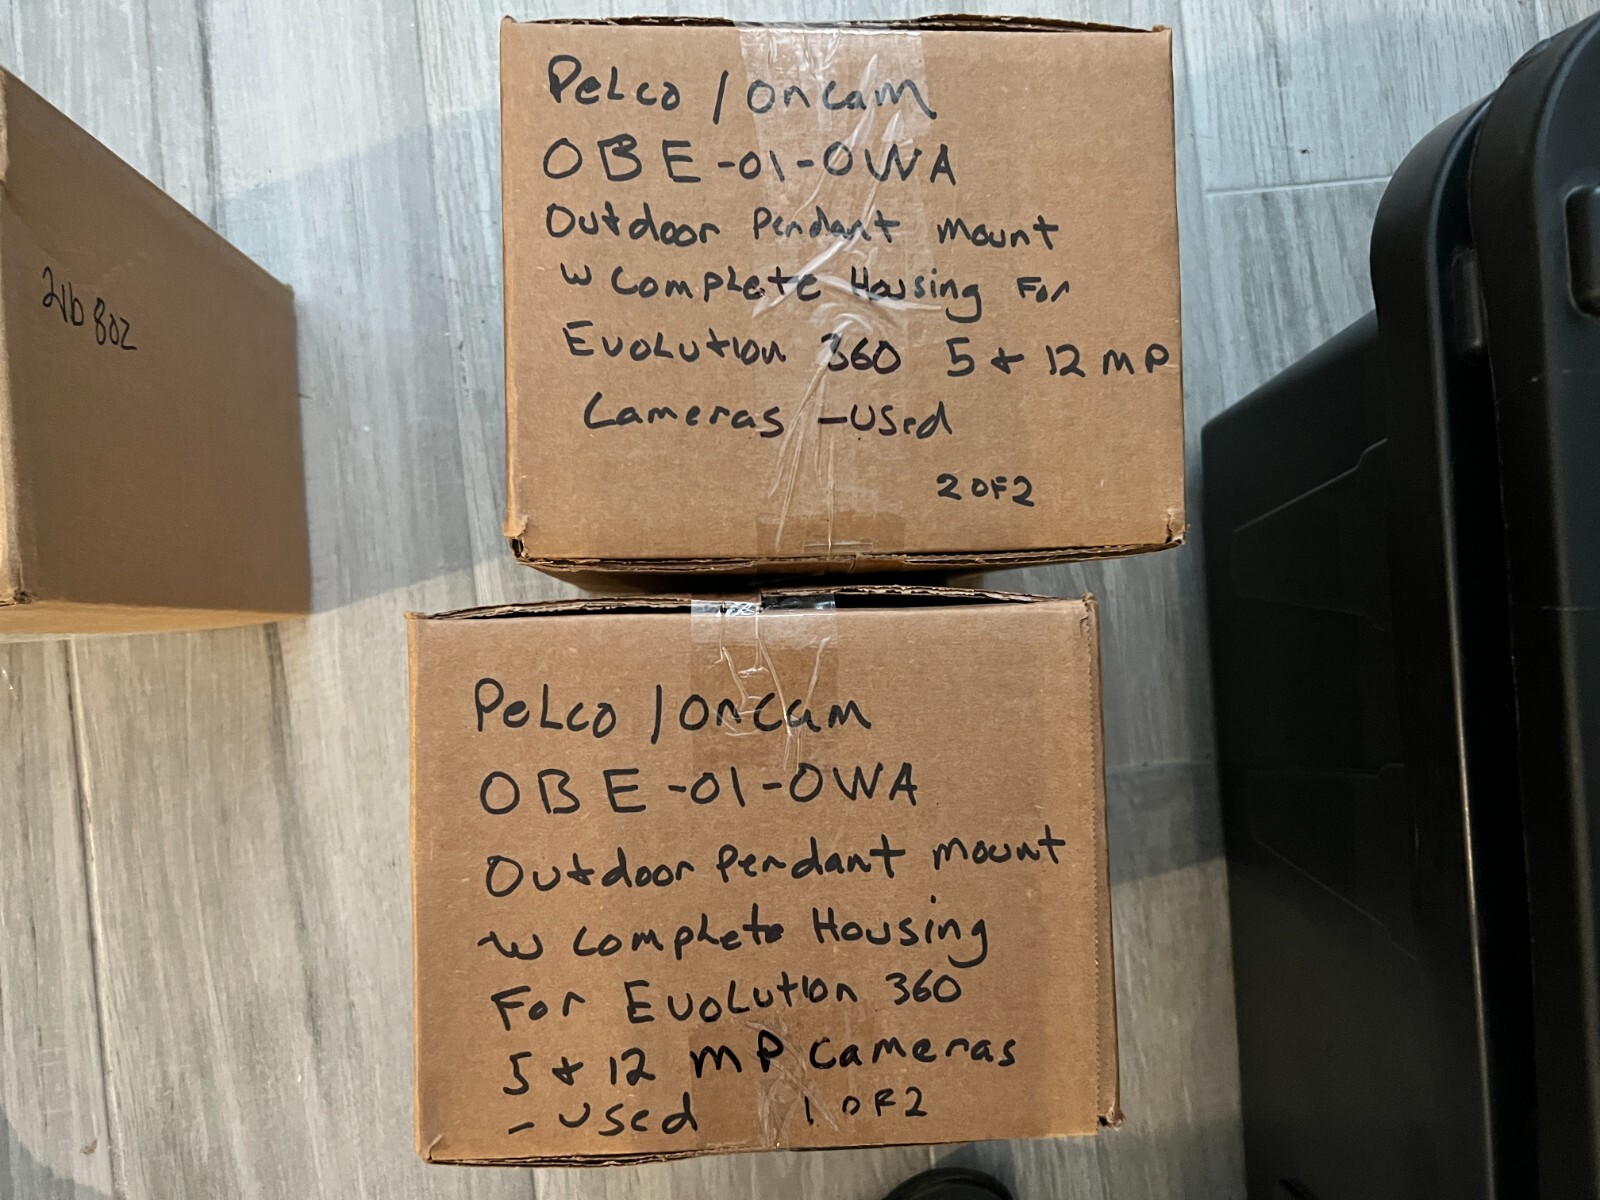 PELCO / ONCAM
OBE-01-OWA
Outdoor Pendant mount
W Complete Housing For
Evolution 360 5 + 12 MP
Cameras - Used
2 OF 2
2lb 8oz
PELCO / ONCAM
OBE-01-OWA
Outdoor Pendant mount
W Complete Housing
For Evolution 360
5 + 12 MP Cameras
- Used 1 OF 2